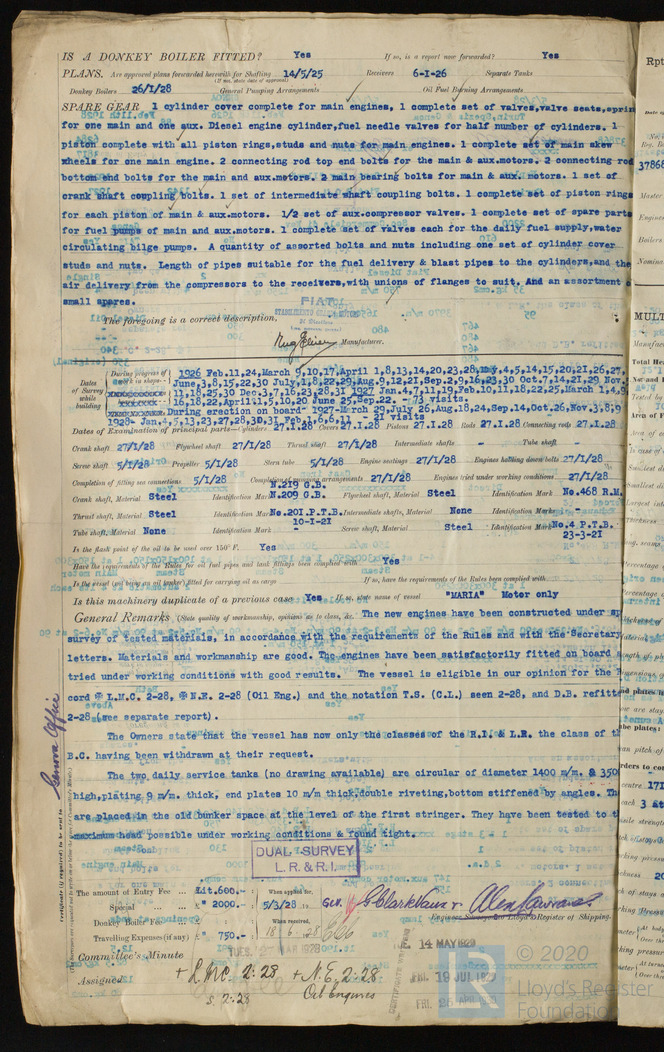 IS A DONKEY BOILER FITTED? Yes If so, is a report now forwarded? Yes
PLANS. Are approved plans forwarded herewith for Shafting 14/5/25 Receivers 6-I-26 Separate Tanks
(If not, state date of approval)
Donkey Boilers 26/I/28 General Pumping Arrangements Oil Fuel Burning Arrangements
SPARE GEAR 1 cylinder cover complete for main engines, 1 complete set of valves,valve seats,sprin
for one main and one aux. Diesel engine cylinder,fuel needle valves for half number of cylinders. 1
piston complete with all piston rings,studs and nuts for main engines. 1 complete set of main skew
wheels for one main engine. 2 connecting rod top end bolts for the main & aux.motors. 2 connecting rod
bottom end bolts for the main and aux.motors. 2 main bearing bolts for main & aux. motors. 1 set of
crank shaft coupling bolts. 1 set of intermediate shaft coupling bolts. 1 complete set of piston rings
for each piston of main & aux.motors. 1/2 set of aux.compressor valves. 1 complete set of spare parts
for fuel pumps of main and aux.motors. 1 complete set of valves each for the daily fuel supply,water
circulating bilge pumps. A quantity of assorted bolts and nuts including one set of cylinder cover
studs and nuts. Length of pipes suitable for the fuel delivery & blast pipes to the cylinders,and the
air delivery from the compressors to the receivers,with unions of flanges to suit. And an assortment o
small spares.
FIAT
The foregoing is a correct description,
Manufacturer.
Dates of Survey while building
During progress of work in shops - 1926 Feb.11,24,March 9,10,17,April 1,8,13,14,20,23,28,May,4,5,14,15,20,2I,26,27,
June,3,8,15,22,30 July,1,8,22,29,Aug.9,12,2I,Sep.2,9,16,23,30 Oct.7,14,2I,29 Nov.
11,18,25,30 Dec.3,7,16,23,28,31 1927 Jan.4,7,11,19,Feb.10,11,18,22,25,March 1,4,9
16,18,22,April1,5,10,20 June 25,Sep.22. - 73 visits.
During erection on board - 1927-March 29,July 26,Aug.18,24,Sep.14,Oct.26,Nov.3,8,9
1928- Jan.4,5,13,23,27,28,30,31 Feb.3,6,6,11 - 21 visits
Dates of Examination of principal parts—Cylinders 27.I.28 Covers 27.I.28 Pistons 27.I.28 Rods 27.I.28 Connecting rods 27.I.28
Crank shaft 27/I/28 Flywheel shaft 27/I/28 Thrust shaft 27/I/28 Intermediate shafts - Tube shaft -
Screw shaft 5/I/28 Propeller 5/I/28 Stern tube 5/I/28 Engine seatings 27/I/28 Engines holding down bolts 27/I/28
Completion of fitting sea connections 5/I/28 Completion of pumping arrangements 27/I/28 Engines tried under working conditions 27/I/28
N.219 G.B.
Crank shaft, Material Steel Identification Mark N.209 G.B. Flywheel shaft, Material Steel Identification Mark No.468 R.M.
Thrust shaft, Material Steel Identification Mark No.20I.P.T.B. Intermediate shafts, Material None Identification Marks -
10-1-2I
Tube shaft, Material None Identification Mark - Screw shaft, Material Steel Identification Mark No.4 P.T.B.
23-3-2I
Is the flash point of the oil to be used over 150° F. Yes
Have the requirements of the Rules for oil fuel pipes and tank fittings been complied with Yes
Is the vessel (not being an oil tanker) fitted for carrying oil as cargo If so, have the requirements of the Rules been complied with
Is this machinery duplicate of a previous case Yes If so, state name of vessel "MARIA" Motor only
General Remarks (State quality of workmanship, opinions as to class, &c. The new engines have been constructed under sp
survey of tested materials, in accordance with the requirements of the Rules and with the Secretary
letters. Materials and workmanship are good. The engines have been satisfactorily fitted on board
tried under working conditions with good results. The vessel is eligible in our opinion for the
cord ✠ L.M.C. 2-28, ✠ N.E. 2-28 (Oil Eng.) and the notation T.S. (C.L.) seen 2-28, and D.B. refitt
2-28 (see separate report).
The Owners state that the vessel has now only the classes of the R.I. & L.R. the class of th
B.C. having been withdrawn at their request.
The two daily service tanks (no drawing available) are circular of diameter 1400 m/m. & 350
high,plating 9 m/m. thick, end plates 10 m/m thick,double riveting,bottom stiffened by angles. Th
are placed in the old bunker space at the level of the first stringer. They have been tested to t
maximum head possible under working conditions & found tight.
DUAL SURVEY
L.R. & R.I.
Genoa Office
The amount of Entry Fee .. Lit.600.- When applied for,
Special .. " 2000.- 5/3/28
Donkey Boiler Fee .. When received,
Travelling Expenses (if any) " 750.- 18.6.28
Engineer Surveyors to Lloyd's Register of Shipping.
Committee's Minute
Assigned + L.M.C. 2.28 + N.E. 2.28
S. 2.28 Oil Engines
14 MAY 1929
© 2020
Lloyd's Register
Foundation
Rpt
MULT